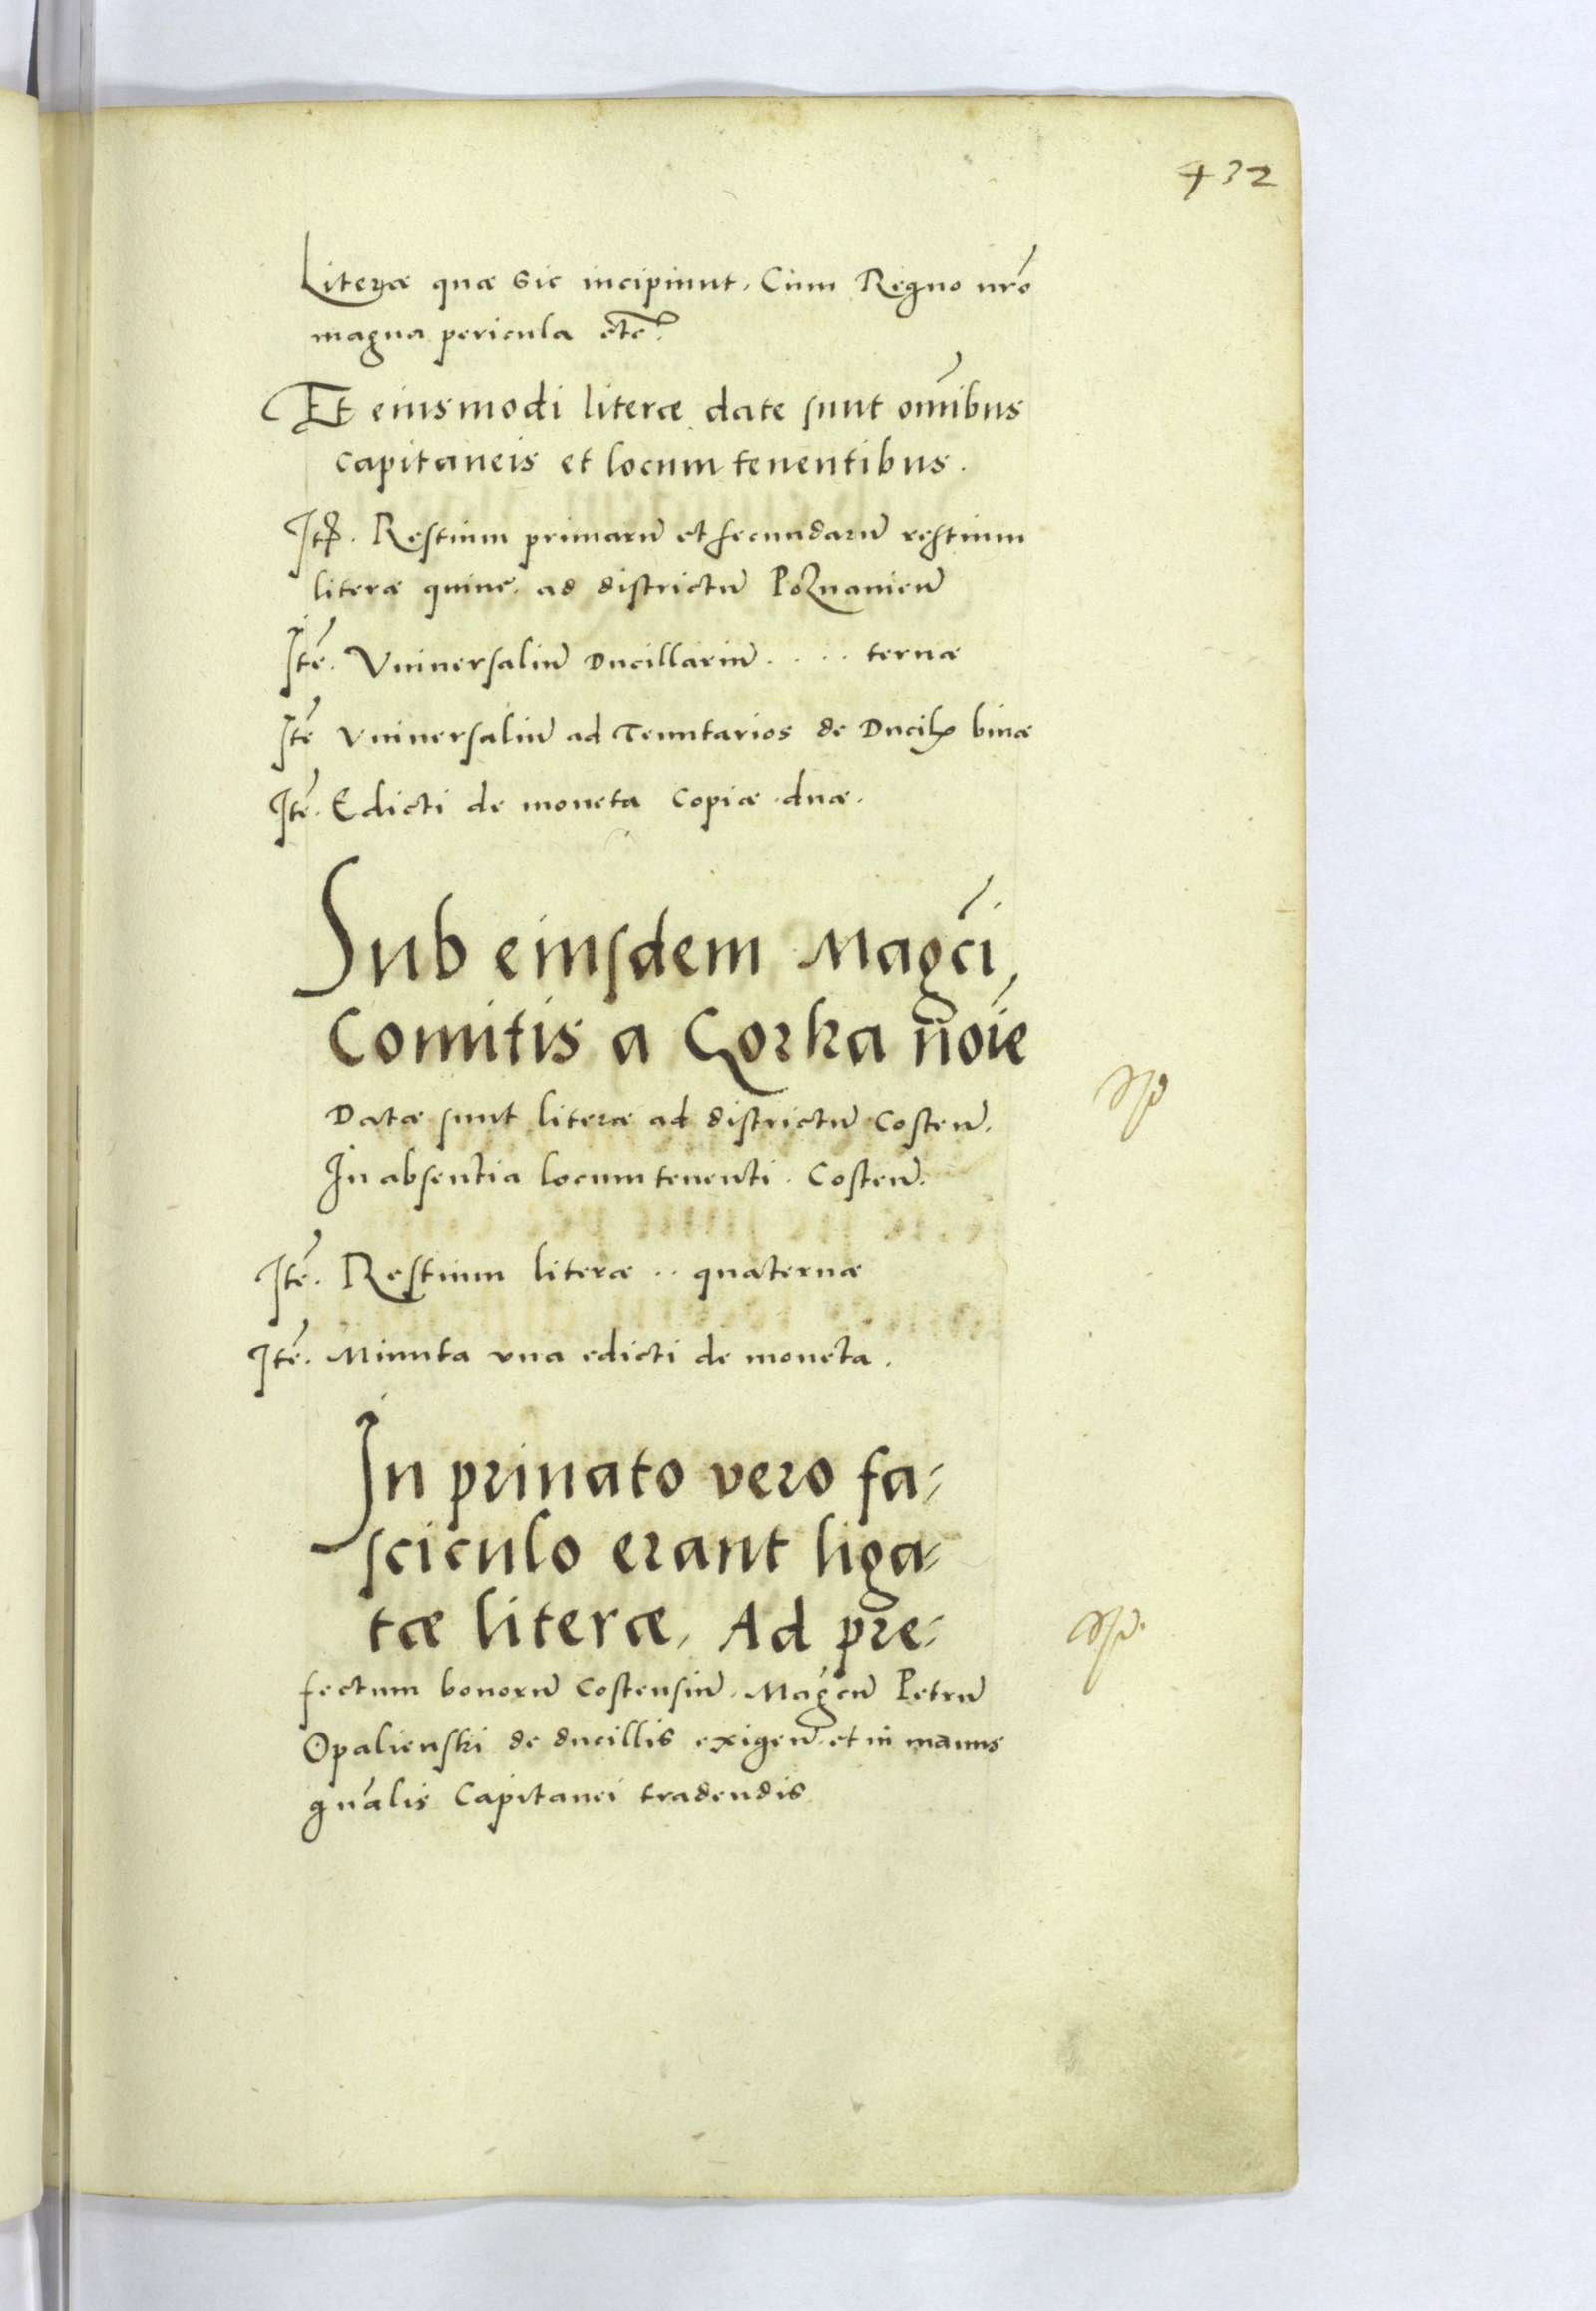 432
Literæ quæ sic incipiunt, Cum Regno nr̃o
magna pericula etc̃.
Et eiusmodi literæ date sunt om̃ibus
capitaneis et locumtenentibus.
Itẽ. Restium primarũ et secundarũ restium
literæ quine. ad districtũ Poznanieñ
Itẽ. Vniuersaliũ Ducillariũ . . . . ternæ
Itẽ Vniuersaliũ ad Tenutarios de Ducil binæ
Itẽ. Edicti de moneta copiæ duæ.
Sub eiusdem Mag̃ci
Comitis a Gorka nõie
Datæ sunt literæ ad districtũ Costeñ.
In absentia locumtenenti. Costeñ.
Itẽ. Restium literæ .. quaternæ
Itẽ. Minuta vna edicti de moneta.
In priuato vero fa-
sciculo erant liga-
tæ literæ, Ad pre-
fectum bonorũ Costensiũ. Mag̃cũ Petrũ
Opalienski de ducillis exigeñ. et in manus
gñalis Capitanei tradendis